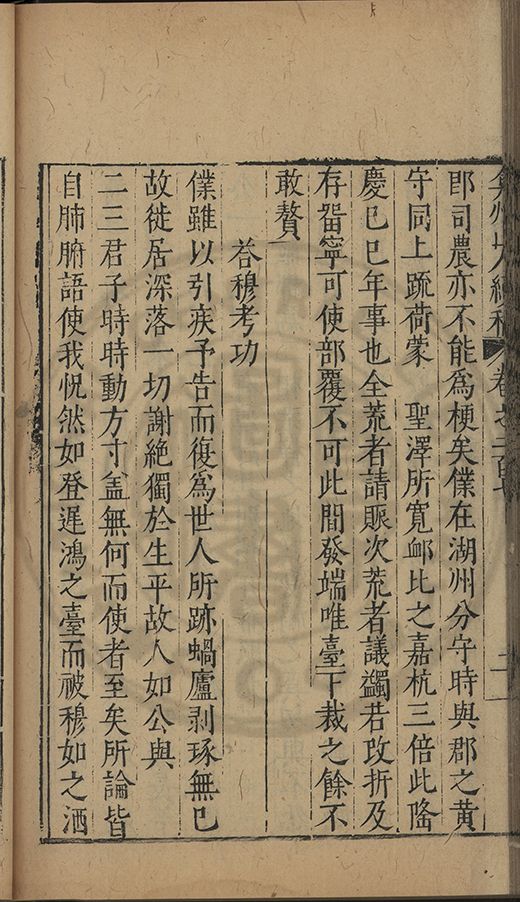 弇州山人續稿 卷之二百七 二
郎司農亦不能爲梗矣僕在湖州分守時與郡之黄
守同上䟽荷蒙 聖澤所寛䘏比之嘉杭三倍此隆
慶巳巳年事也全荒者請賑次荒者議蠲若攺折及
存畱寧可使部覆不可此間發端唯臺下裁之餘不
敢贅
荅穆考功
僕雖以引疾予告而復爲世人所跡蝸廬剥琢無巳
故徙居深落一切謝絶獨於生平故人如公與
二三君子時時動方寸㿽無何而使者至矣所論皆
自肺腑語使我怳然如登遲鴻之臺而被穆如之洒